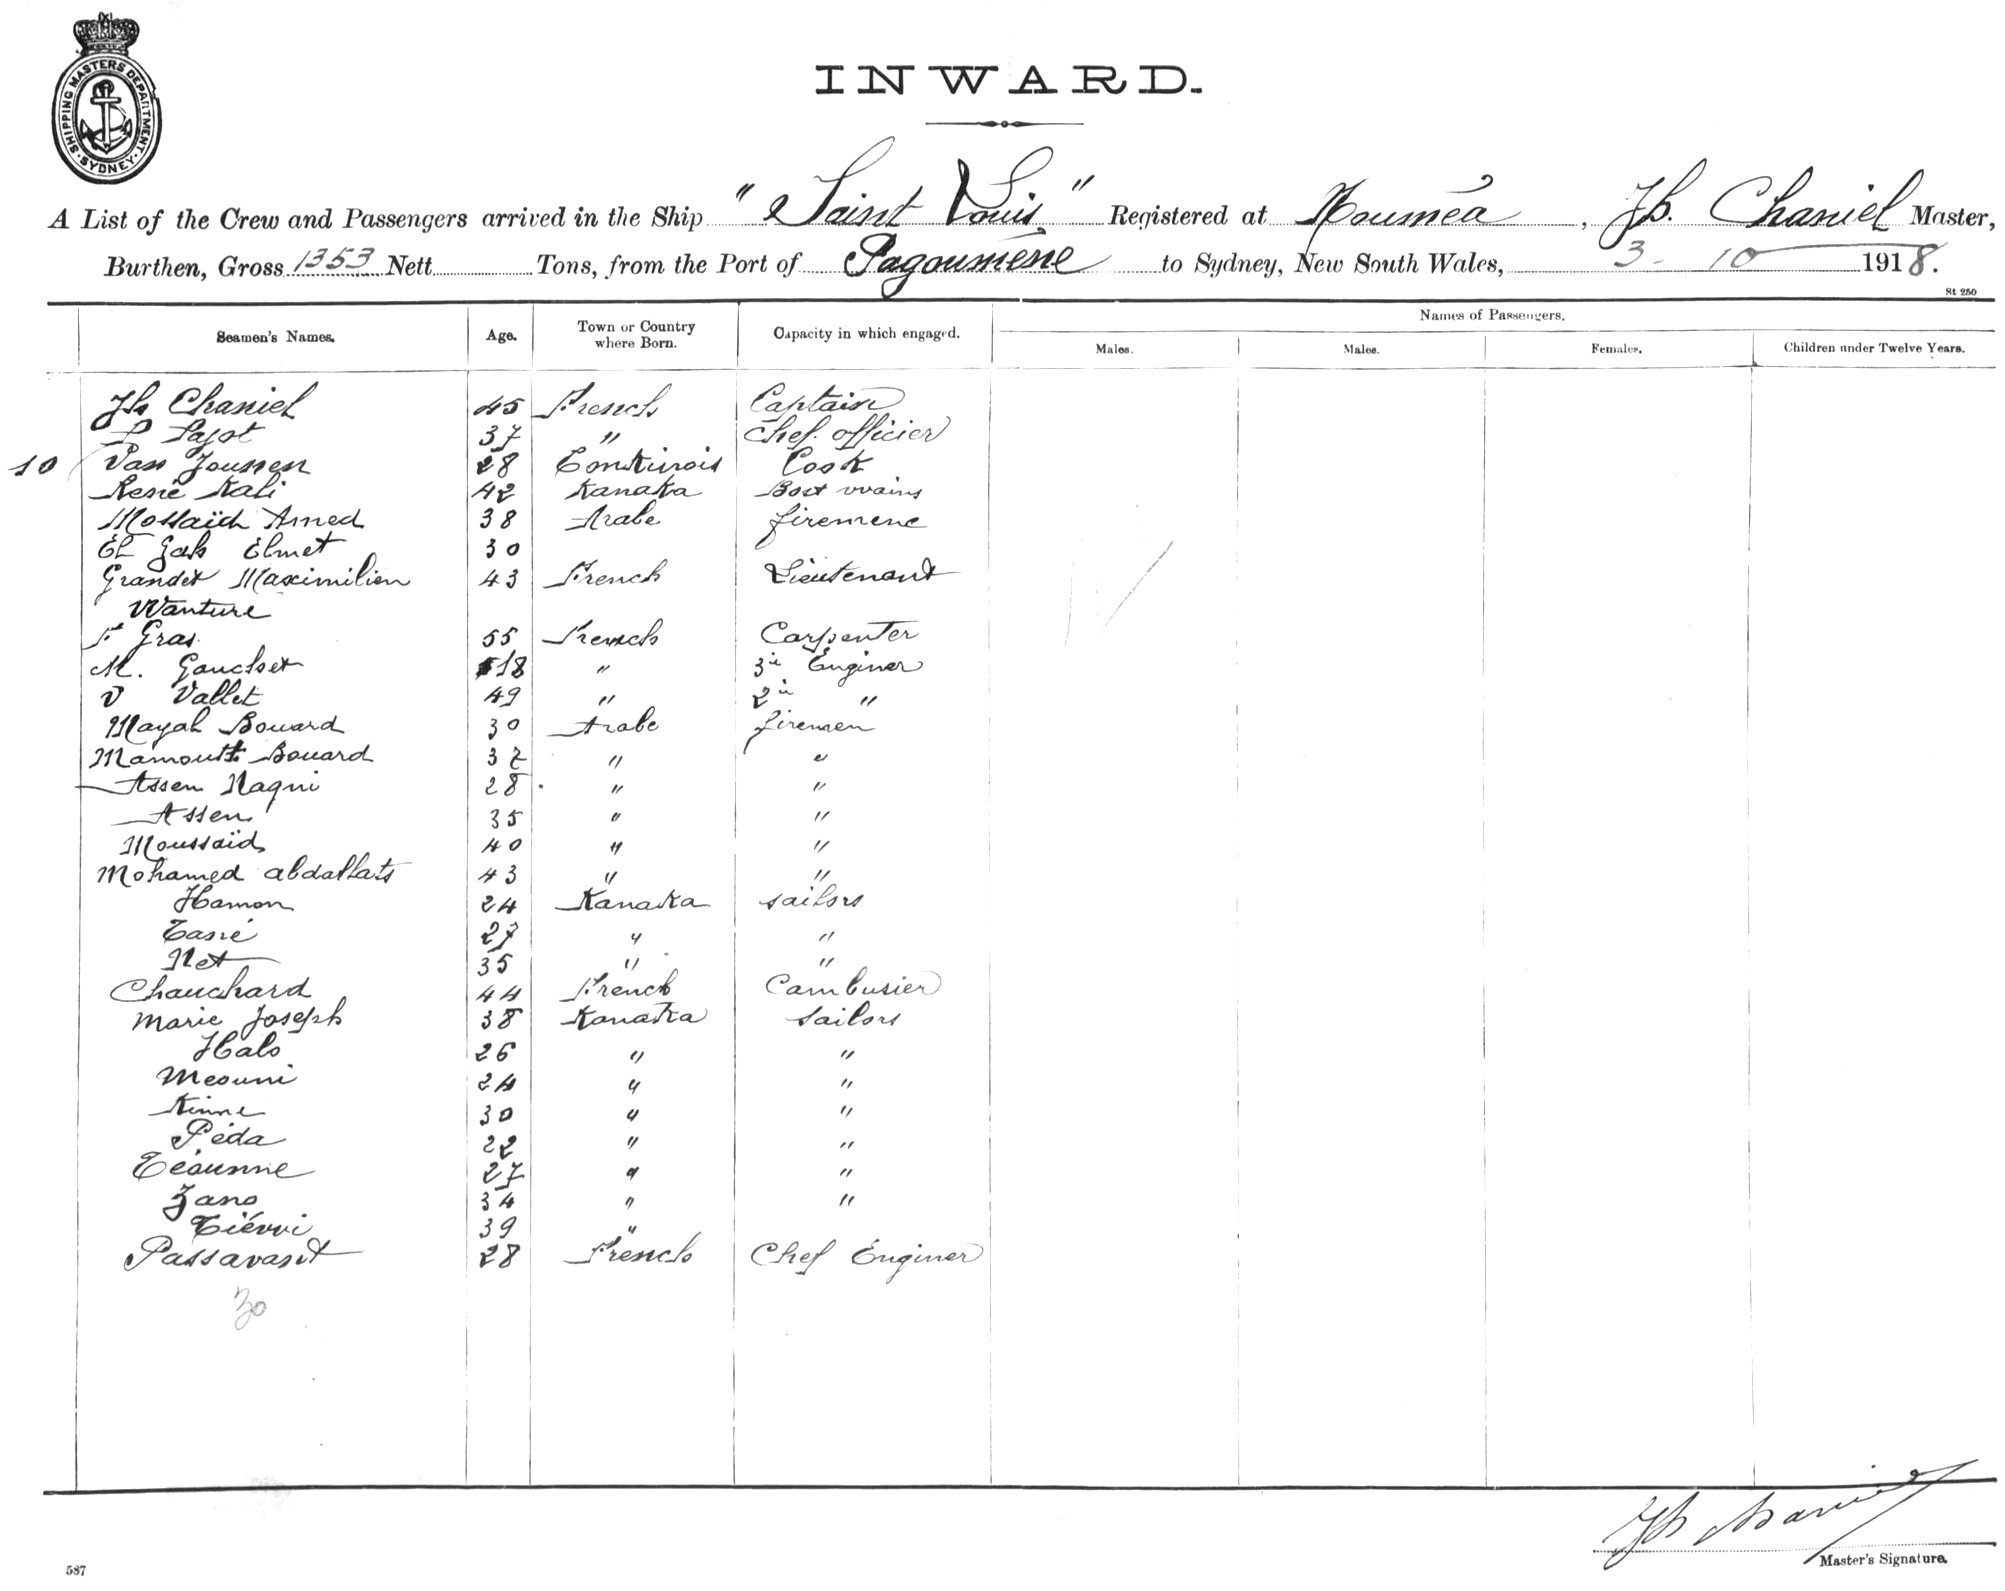 SHIPPING MASTERS DEPARTMENT. SYDNEY.
INWARD.
A List of the Crew and Passengers arrived in the Ship "Saint Louis" Registered at Nouméa, Jh. Chaniel Master,
Burthen, Gross 1353 Nett Tons, from the Port of Pagoumène to Sydney, New South Wales, 3- 10 1918.
St 250
Seamen's Names. Age. Town or Country where Born. Capacity in which engaged. Names of Passengers.
Males. Males. Females. Children under Twelve Years.
Jh Chaniel 45 French Captain
P Pajot 37 " Chef. officier
10 Van Joussen 28 Tonkinois Cook
René Kali 42 Kanaka Boat wains
Mossaïd Amed 38 Arabe firemene
El Gah Elmet 30
Grandet Maximilien 43 French Lieutenant
Wanture
F Gras 55 French Carpenter
M. Gauchet 18 " 3e Enginer
V Vallet 49 " 2e "
Mayah Bouard 30 Arabe firemen
Mamoutt Bouard 37 " "
Assen Naqui 28 " "
Assen 35 " "
Moussaïd 40 " "
Mohamed abdallats 43 " "
Hamon 24 Kanaka sailors
Tasié 27 " "
Net 35 " "
Chauchard 44 French Cambusier
Marie Joseph 38 Kanaka sailors
Halo 26 " "
Meouni 24 " "
Kinne 30 " "
Péda 22 " "
Téounne 27 " "
Zano 34 " "
Tiévvi 39 "
Passavant 28 French Chef Enginer
30
Jh Chaniel
Master's Signature.
587